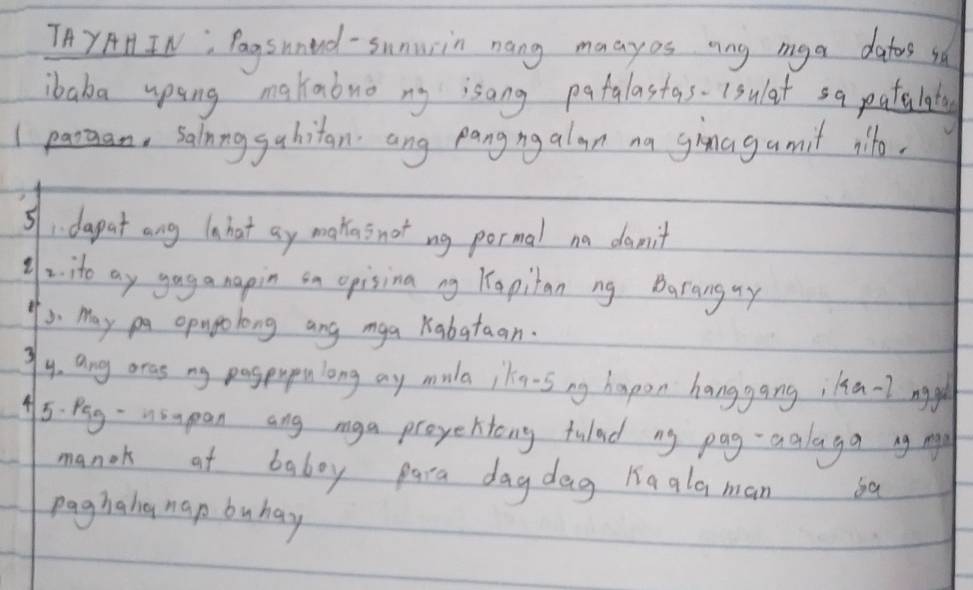 TAYAHIN : Pagsunud-sunurin nang maayos ang mga datos sa
ibaba upang makabuo ng isang patalastas. isulat sa patalatas
1 pargan. Salungguhitan. ang pangngalan na ginagamit nito.
5 1. dapat ang lahat ay makasuot ng pormal na damit
2 2. ito ay gaganapin sa opisina ng Kapitan ng Barangay
1 3. May pa opupolong ang mga Kabataan.
3 4. ang oras ng pagpupulong ay mula ika-5 ng hapon hanggang ika-7 ng
4 5. Pag-usapan ang mga proyektong tulad ng pag-aalaga ng mga
manok at baboy para dagdag Kaalaman sa
paghahanap buhay